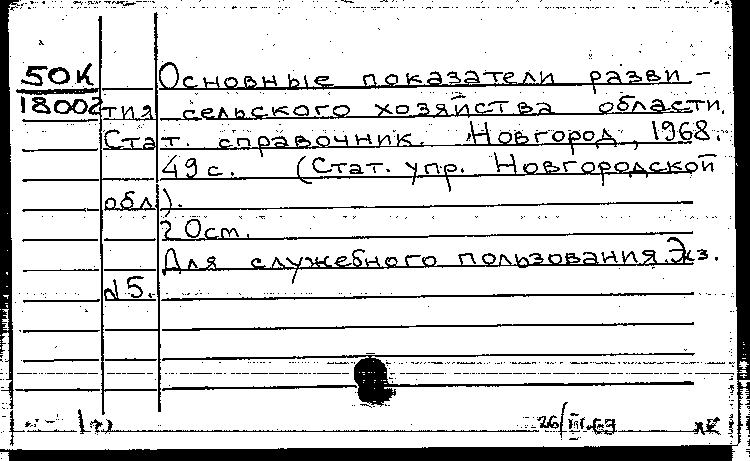 50К Основные показатели разви-
18002 тия сельского хозяйства области.
Стат. справочник. Новгород, 1968.
49 с. (Стат. упр. Новгородской
обл.).
2 Ост.
Для служебного пользования. Экз.
№5.
26/III-69 хК